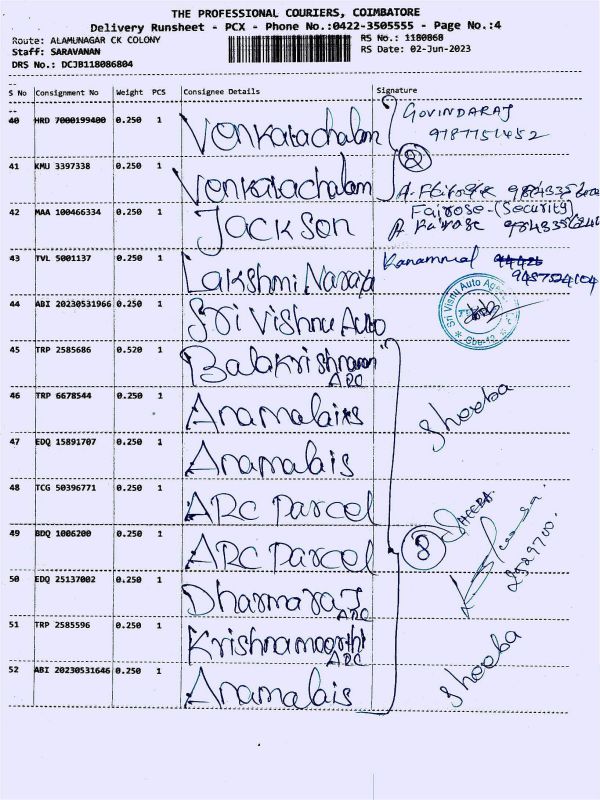 THE PROFESSIONAL COURIERS, COIMBATORE
Delivery Runsheet - PCX - Phone No.:0422-3505555 - Page No.:4
Route: ALAMUNAGAR CK COLONY
RS No.: 1180868
Staff: SARAVANAN
RS Date: 02-Jun-2023
DRS No.: DCJB118086804
S No Consignment No Weight PCS Consignee Details Signature
40 HRD 7000199400 0.250 1 Venkatachalam GOVINDARAJ
9787751452
2
41 KMU 3397338 0.250 1 Venkatachalam
42 MAA 100466334 0.250 1 Jackson Fairose-(Security)
A. Fairose
43 TVL 5001137 0.250 1 Lakshmi Naraya Kanammal
9487524104
44 ABI 20230531966 0.250 1 Sri Vishnu Auto Sri Vishnu Auto
45 TRP 2585686 0.520 1 Balakrishnan
ARC
46 TRP 6678544 0.250 1 Anamalais Shooba
47 EDQ 15891707 0.250 1 Anamalais
48 TCG 50396771 0.250 1 ARC Parcel
49 BDQ 1006200 0.250 1 ARC Parcel 8
50 EDQ 25137002 0.250 1 Dharmaraj
ARC
51 TRP 2585596 0.250 1 Krishnamoorthi
ARC
Shooba
52 ABI 20230531646 0.250 1 Anamalais